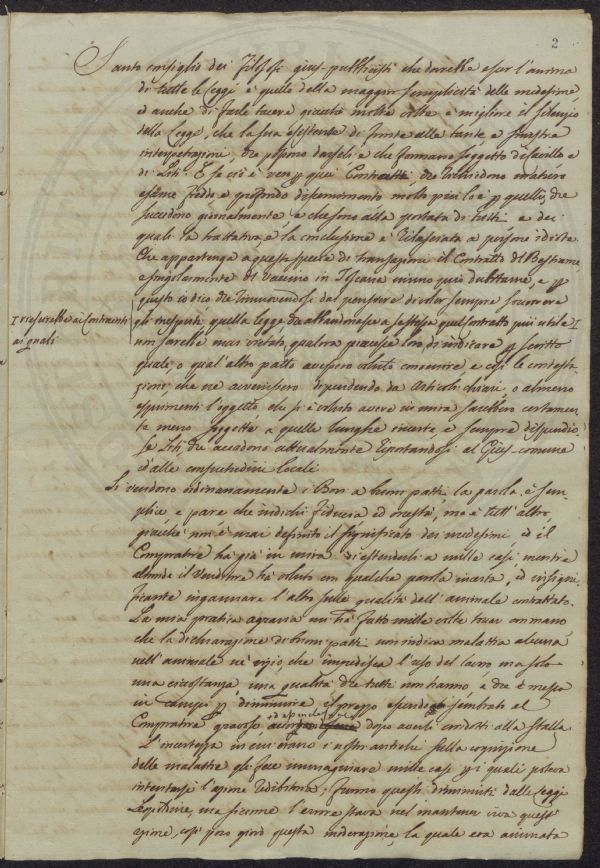 2
Santo consiglio dei Filosofi gius-pubblicisti che dovrebbe esser l'anima
di tutte le Leggi è quello della maggior semplicità delle medesime,
ed anche di farle tacere giacchè molte volte è migliore il silenzio
della Legge, che la sua esistenza di fronte alla tanta e sinistra
interpetrazione, che possono darseli e che formano soggetto di cavillo e
di Liti. E se ciò è vero p quei Contratti, che richiedono maturo
esame freddo, e profondo discernimento molto più lo è p quelli, che
succedono giornalmente, e che sono alla portata di tutti e dei
quali la trattativa, e la conclusione è rilasciata a persone idiote.
Che appartenga a questa specie di transazione il Contratto di Bestiame,
e singolarmente del vaccino in Toscana niuno può dubitarne, e p
questo io dico che rimovendosi dal pensiero di voler sempre soccorrere
I riescirebbe ai Contraenti
ai quali
gl'inesperti quella legge da abbandonarsi a se stessa quel contratto più utile I
non sarebbe mai vietato, qualora piacesse loro di indicare p scritto
quale, o qual'altro patto avessero voluto convenire e così le contesta-
zioni, che ne avvenissero dipendendo da Articoli chiari, o almeno
esprimenti l'oggetto, che si è voluto avere in mira sarebbero certamen-
te meno soggette a quelle lunghe incerte, e sempre dispendio-
se Liti, che accadono attualmente riportandosi al Gius-comune
e dalle consuetudini locali
Si vendono ordinariamente i Bovi a buon patti: la parola è sem-
plice e pare che indichi fiducia ed onestà, ma è tutt'altro
giacchè non è mai definito il significato dei medesimi, ed il
Compratore ha già in mira di estenderli a mille casi mentre
altronde il Venditore ha voluto con qualche parola incerta, ed insigni-
ficante ingannare l'altro sulla qualità dell'animale contrattato.
La mia pratica agraria mi ha fatto mille volte toccar con mano
che la dichiarazione di buon patti non indica malattia alcuna
nell'animale nè vizio, che impedisca l'uso del lavoro ma solo
una circostanza una qualità che tutti non hanno, e che è messa
in campo p diminuire il prezzo essendo sembrato al
Compratore gravoso dopo averli condotti alla Stalla.
L'incertezza in cui erano i nostri antichi sulla cognizione
delle malattie gli fece immaginare mille casi p i quali poteva
intentarsi l'azione redibitoria; furono questi diminuiti dalle Leggi
Leopoldine, ma siccome l'errore stava nel mantener viva quest'
azione, così poco giovò questa moderazione, la quale era animata